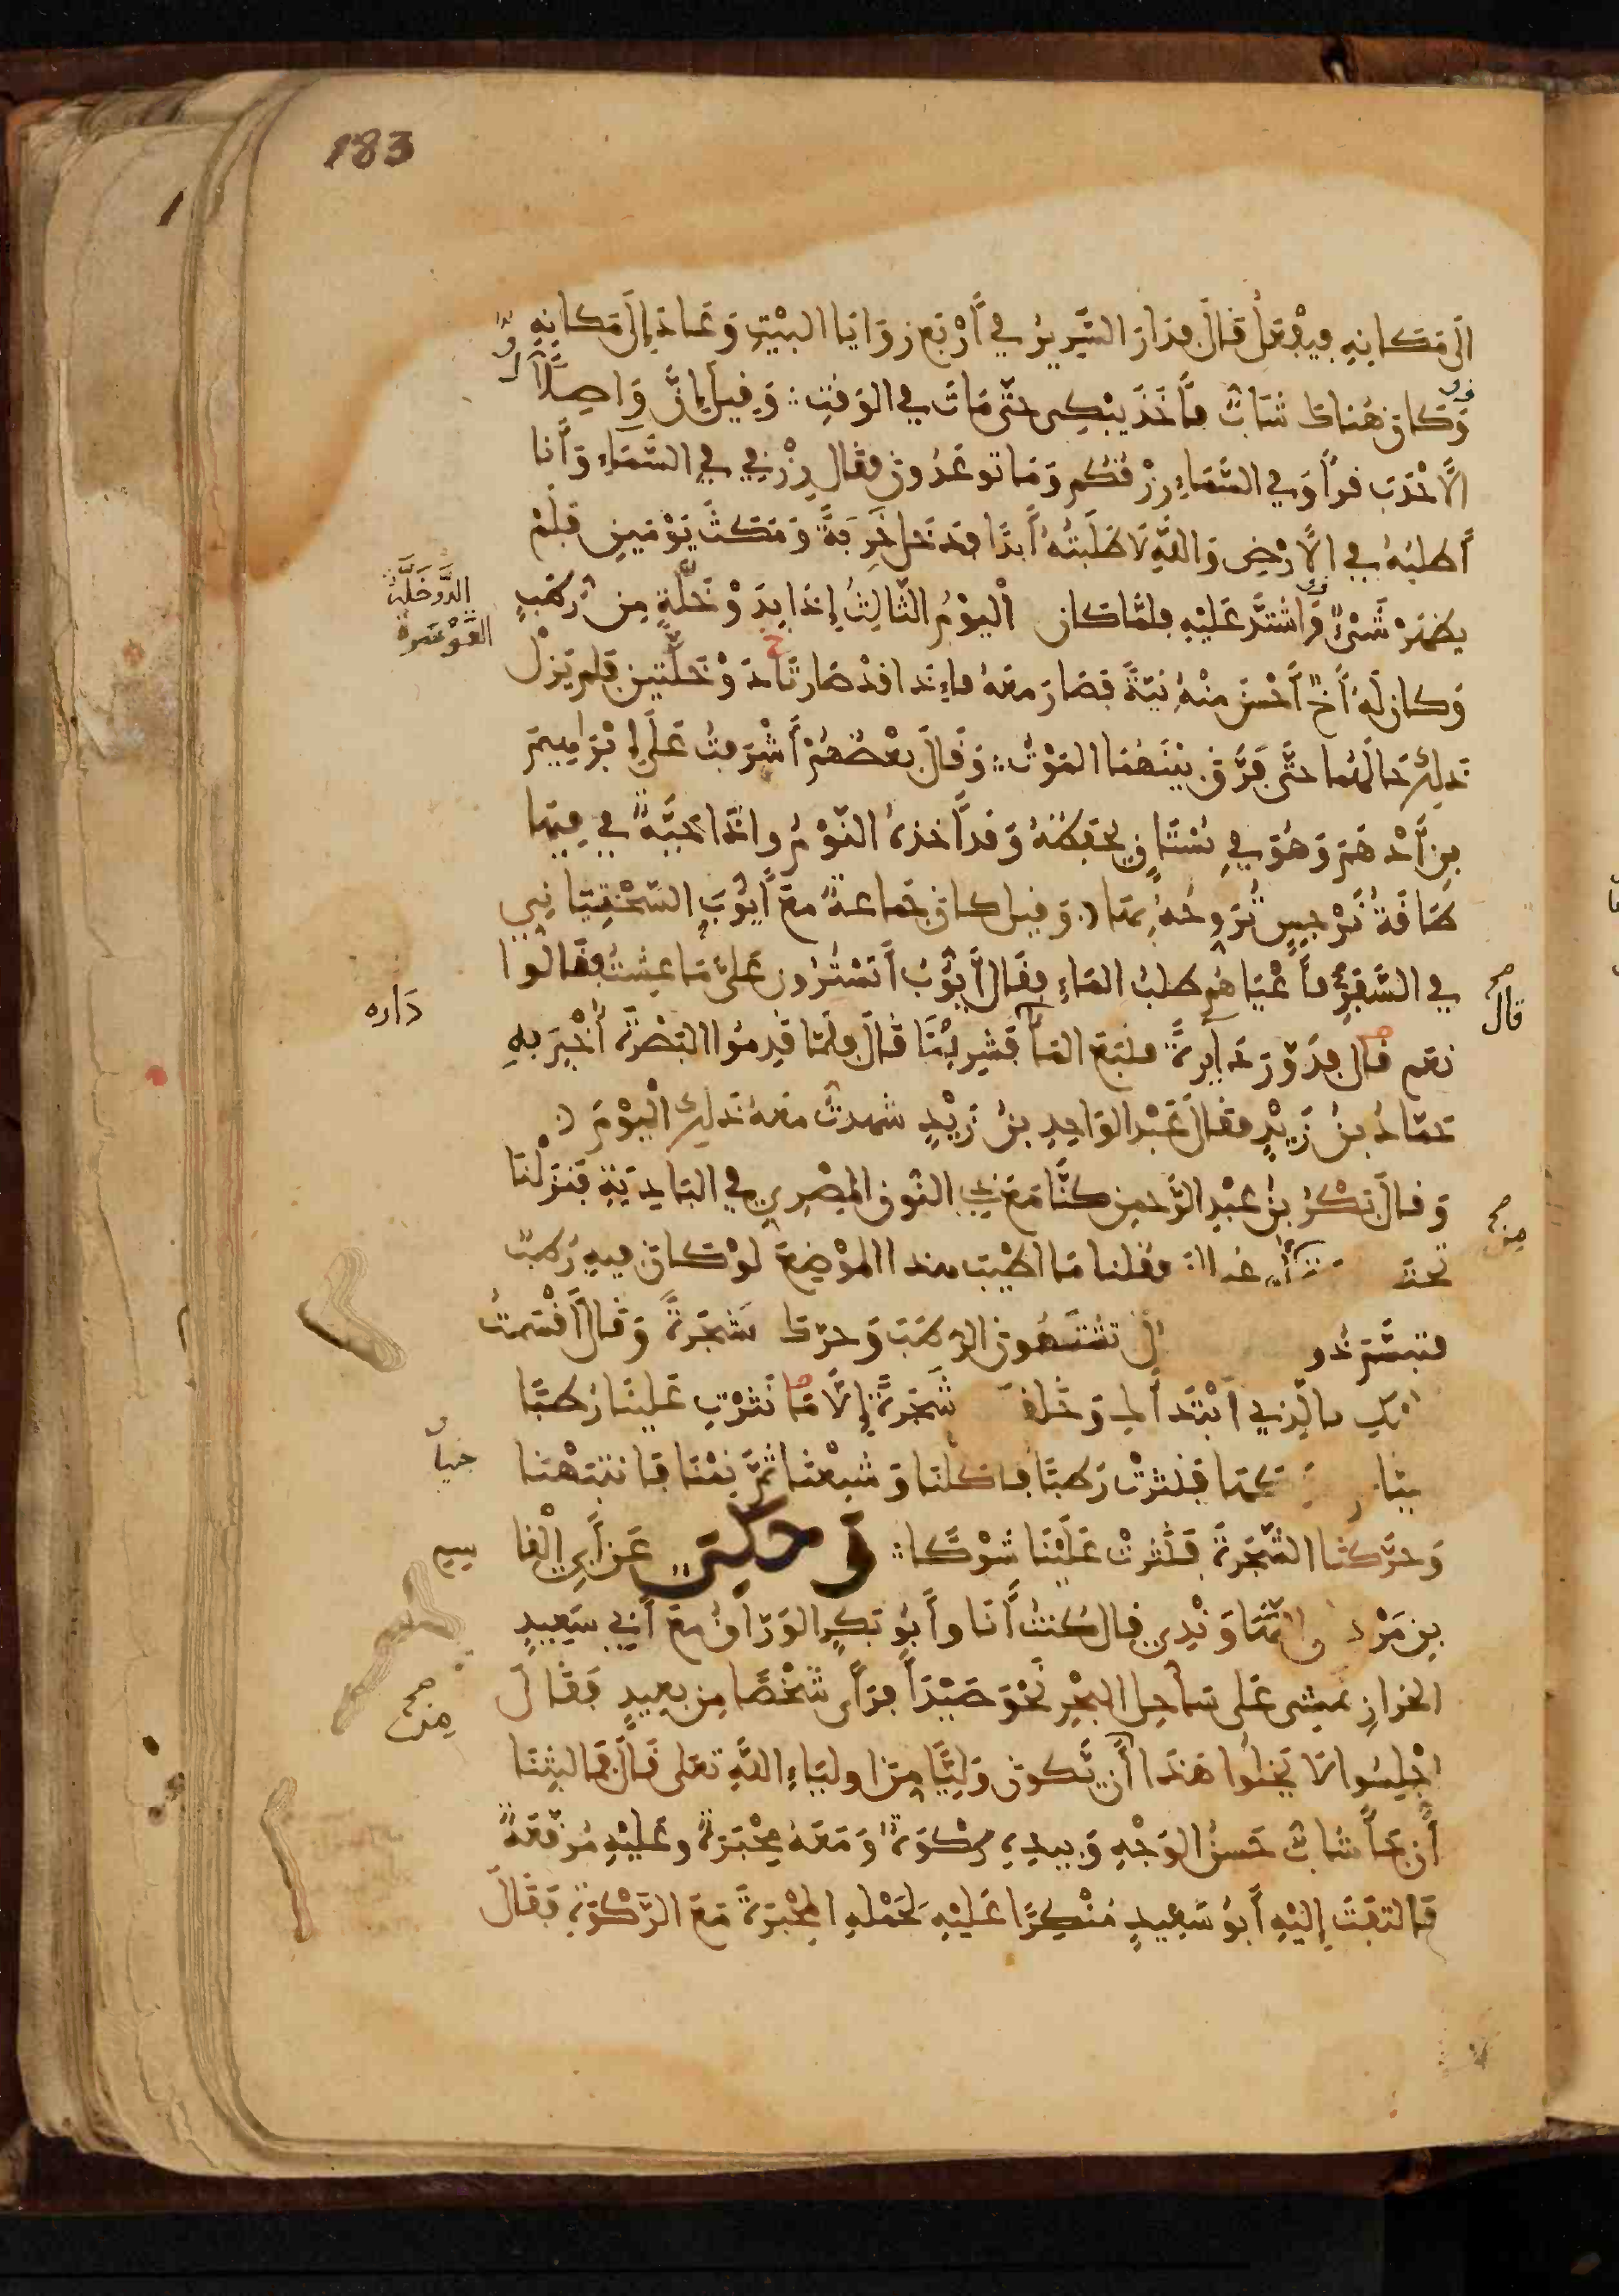 183
الَى مَكانِهِ فيفْعَلُ قَالَ فدَارَ السَّرِيرُ في أَرْبَع زوَايَا البيْتِ وَعَادَ إلَى مَكانِهِ
وَكَانَ هُنَاكَ شَابٌّ فأَخَذَ يبْكِى حتَّى مَاتَ في الوَقْتِ وَقِيلَ إنَّ وَاصِلًا
الأَحْدَبَ قرأَ وَفي السَّمَاءِ رِزْقُكم وَمَا توعَدُونَ فقال رِزْقِي في السَّمَاءِ وَأَنا
أَطلبُهُ في الأَرْضِ وَاللَّهِ لاَ طَلَبتُهُ أَبدًا فدخَل خَرِبَةً وَمَكَثَ يَوْمَينِ فَلَمْ
يظهَرْ شَىْءٌ فَاشتدَّ عَلَيْهِ فلمَّا كان الْيَوْمُ الثَّالِثُ إذا بِدَوْخَلَّةٍ مِن رُطَبٍ
الدَّوخَلَّةُ
القَوْصَرة
وَكان لَهُ أَخٌ أَحْسَنُ مِنْهُ نيَّةً فصَارَ معَهُ فإذا قدْ صَارتَا دَوْخَلَّتينِ فلم يَزلْ
ذلِكَ حَالَهُما حتَّى فَرَّقَ بيْنَهُمَا المَوْتُ وَقَالَ بعْضُهُمْ أَشْرَفتُ عَلَى إبْرَاهِيمَ
بنِ أَدْهَمَ وَهُوَ في بُسْتَانٍ يحْفظُهُ وَقدْ أَخذهُ النَّوْمُ وإذَا حَيَّةٌ في فِيهَا
طَاقَةُ نَرْجِسٍ تُرَوحُهُ بِهَا وَقيل كانَ جَمَاعةٌ معَ أَيُّوبَ السَّخْتِيَانِي
في السَّفَرِ فأَعْيَاهُم طلبُ المَاءِ فقَالَ أَيُّوبُ أَتَسْتُرُونَ عَلَىَّ مَا عِشتُ فقَالُوا
قال
نعَم قال فدَوَّرَ دَآيِرةً فنَبَعَ المَآءُ فشرِبْنَا قَالَ فلمَّا قَدِمُوا البَصْرَةَ أُخْبَرَ بِهِ
دَاره
حمَّادُ بنُ زَيْدٍ فقَالَ عَبْدُ الوَاحِدِ بنُ زَيْدٍ شهدتُ مَعهُ ذلِكَ الْيَوْمَ
وَقَالَ بَكْرُ بنُ عبْدِ الرَّحمن كنَّا مَعَ ذِي النُّونِ المِصْرِي في البَادِيَةِ فنَزَلْنَا
تحتَ فقلنا مَا اطْيَبَ هذا المَوْضِعَ لوْ كَانَ فِيهِ رُطبٌ
فتبسَّمَ ذو تشتَهُونَ الرُّطَبَ وَحرّكَ شَجَرةً وَقَالَ أَقْسَمتُ
بالَّذِي ابْتَدَأَكِ وَخَلَقَ شَجَرةً إلاَّ مَا نَثَرْتِ عَلَينَا رُطبًا
جنيًّا
فنَثرَتْ رُطبًا فأكلنَا وَشبِعْنَا ثمَّ نِمْنَا فانتَبَهْنَا
وَحرَّكنَا الشَّجَرةَ فَنَثرتْ عَلَيْنَا شوْكًا وَحكَى عَن أَبِي الْقَا
سِم
بنِ مَرْد النَّهَاوَنْدِي قال كُنتُ أَنَا وأَبُو بَكرٍ الوَرّاقُ معَ أَبِي سَعِيدٍ
الخرازِ نمشِى عَلى سَاحِل البحْرِ نحْوَ صَيْدَا فرَأَى شَخْصًا مِن بعِيدٍ فَقَالَ
اجْلِسُوا لاَ يَخلُوا هَذَا أَن يكونَ وَلِيًّا مِن اوليَاءِ اللَّهِ تَعَلى قَالَ فَمَا لبِثْنَا
أَن جَآءَ شَابٌّ حَسنُ الوَجْهِ وَبيدِهِ رَكْوَةٌ وَمَعَهُ مِحْبَرَةٌ وعَليْهِ مُرَقَّعَةٌ
فَالتَفَتَ إلَيْهِ أَبُو سَعِيدٍ مُنْكِرًا عَلَيْهِ لحَمْلِهِ المِحْبَرَةَ مَعَ الرَّكْوَةِ فَقَالَ